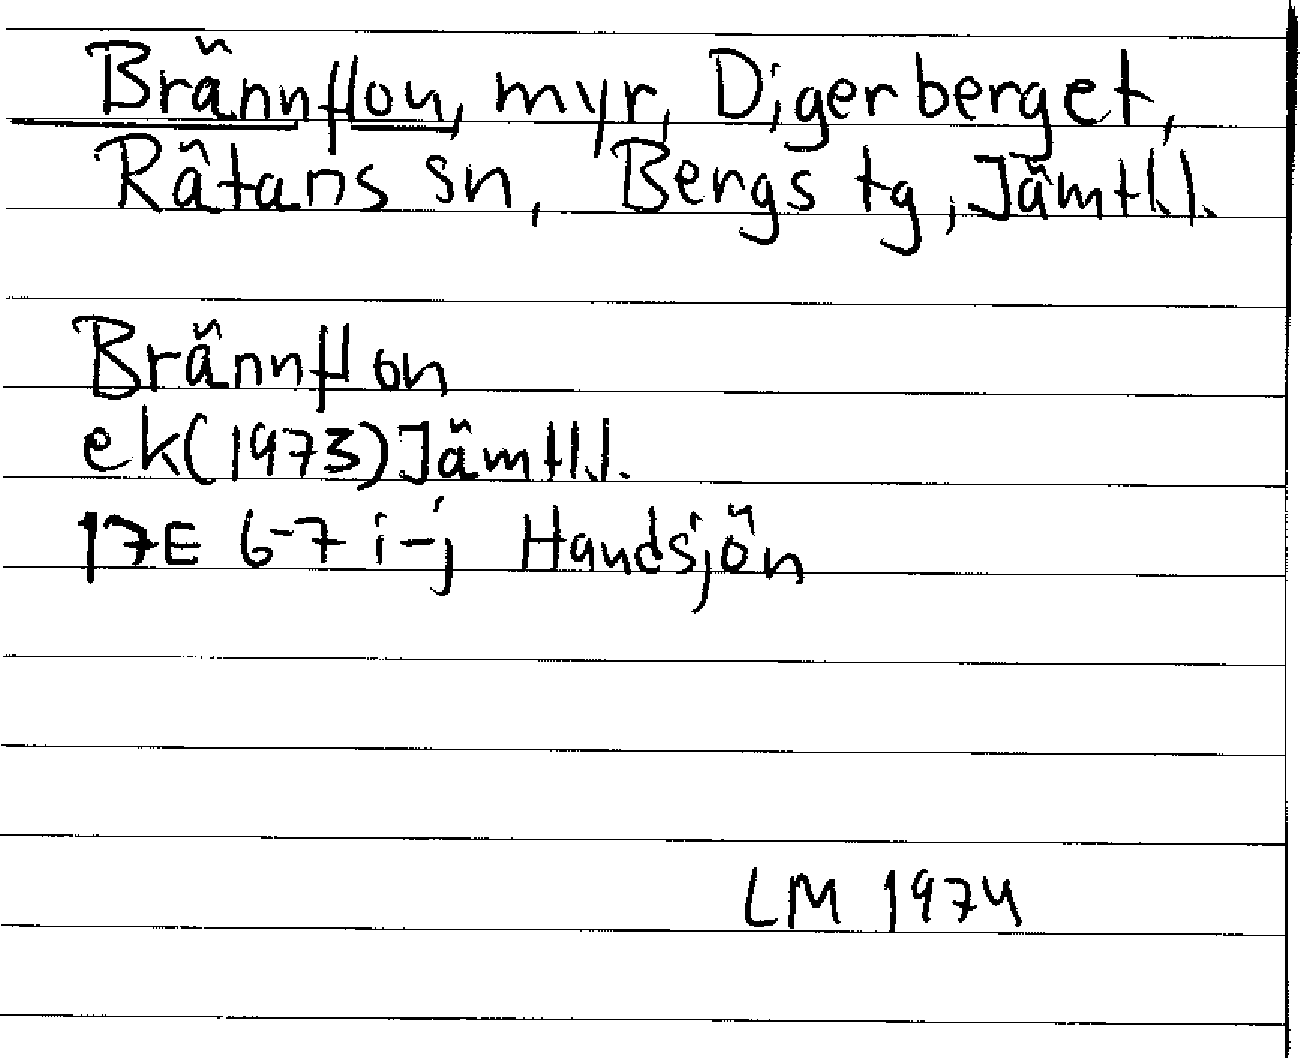 Brännflon, myr, Digerberget,
Rätans sn, Bergs tg, Jämtl.l.
Brännflon
ek(1973) Jämtl.l.
17E 6-7 i-j Handsjön
LM 1974